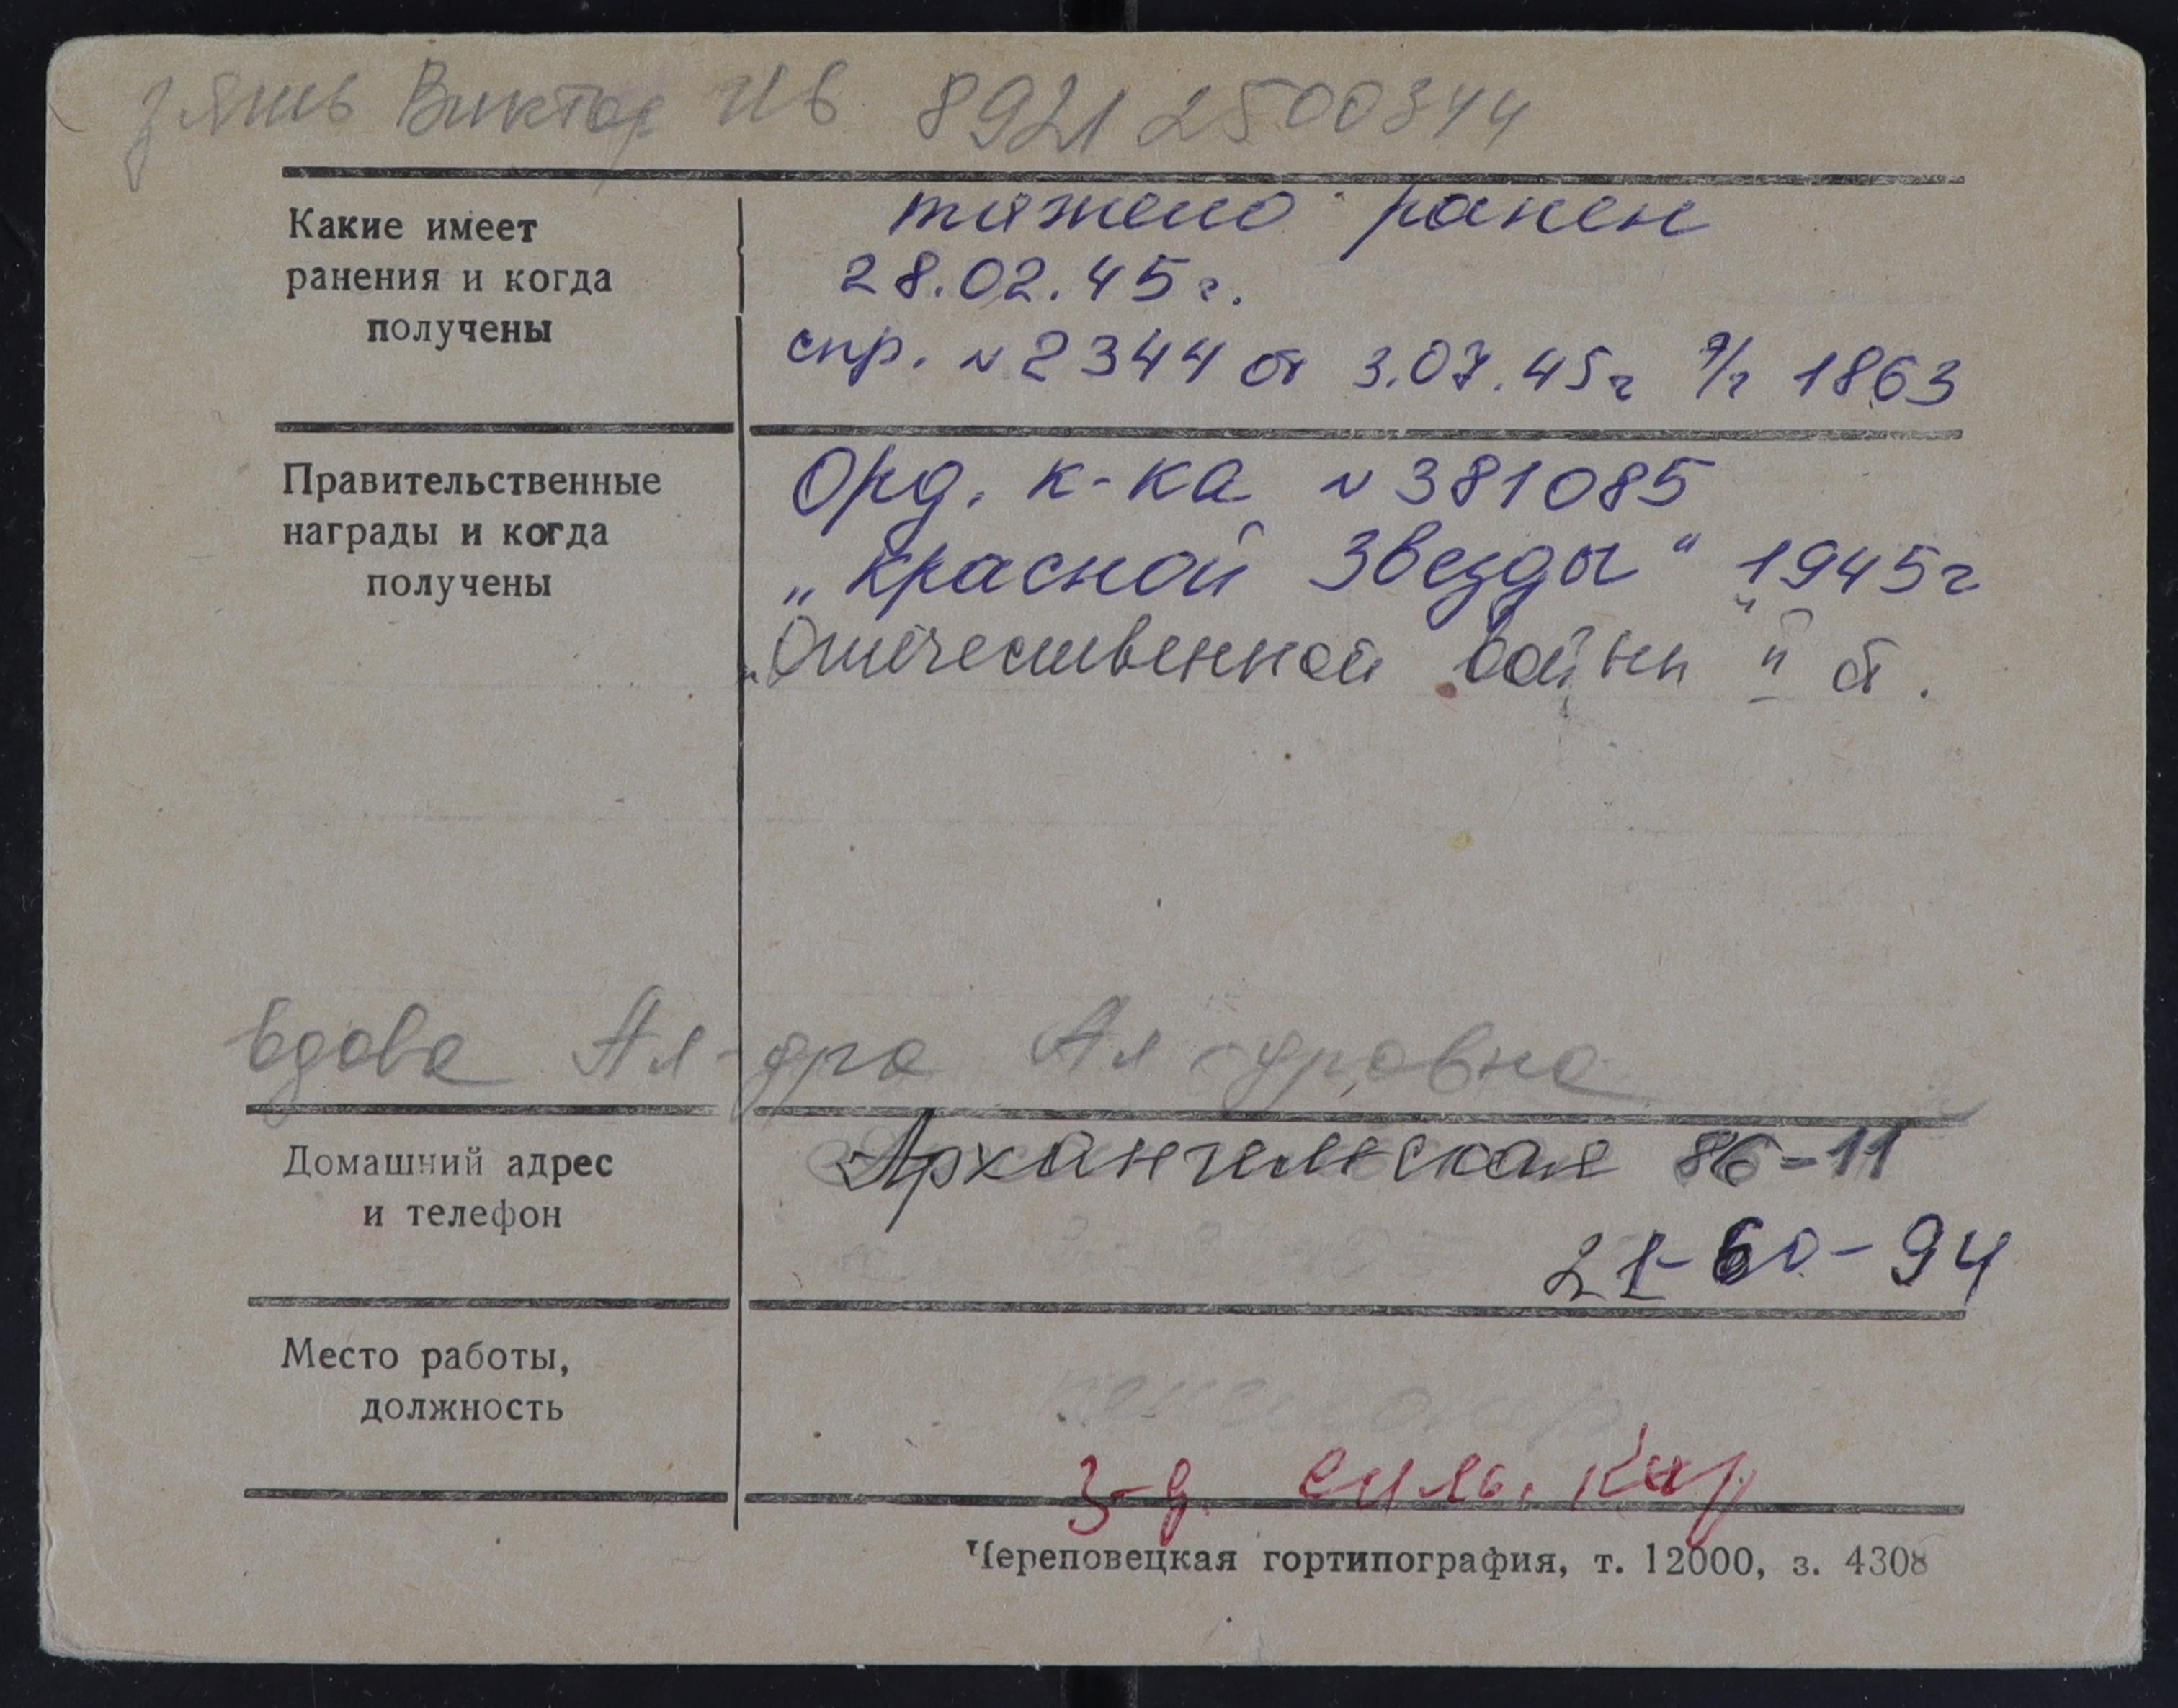 зять Виктор Ив 8921 2500344
Какие имеет
ранения и когда
получены
тяжело ранен
28.02.45г.
спр. N 2344 от 3.07.45г э/г 1863
Правительственные
награды и когда
получены
Орд. к-ка N 381085
„Красной Звезды“ 1945г
„Отечественной войны" II ст.
вдова Ал-дра Ал-дровна
Домашний адрес
и телефон
Архангельская 86-11
21-60-94
Место работы,
должность
пенсионер
з-д силь. кир
Череповецкая гортипография, т. 12000, з. 4308